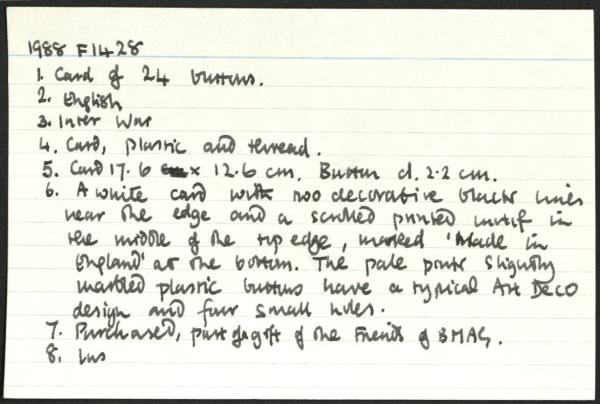 1988 F1428
1. Card of 24 buttons.
2. English
3. Inter War
4. Card, plastic and thread.
5. Card 17.6 x 12.6 cm. Button d. 2.2 cm.
6. A white card with two decorative black lines
near the edge and a scrolled printed motif in
the middle of the top edge, marked 'Made in
England' at the bottom. The pale pink slightly
marbled plastic buttons have a typical Art Deco
design and four small holes.
7. Purchased, part of a gift of the Friends of BMAG.
8.